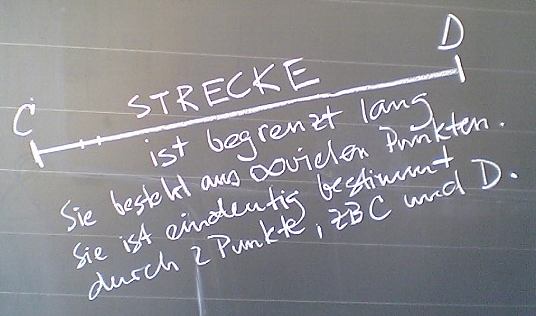 D
C
STRECKE
ist begrenzt lang
Sie besteht aus ∞vielen Punkten.
Sie ist eindeutig bestimmt
durch 2 Punkte, zB C und D.